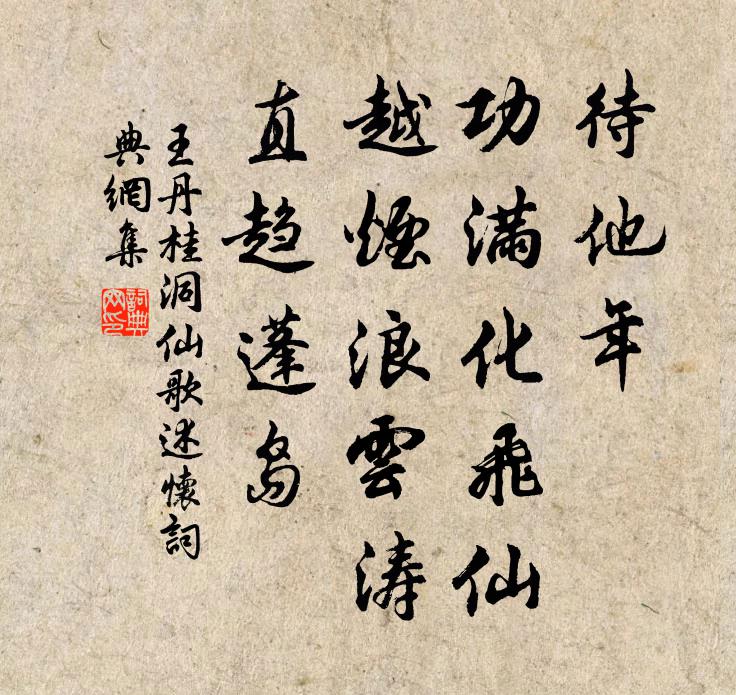 待他年
功滿化飛仙
越煙浪雲濤
直趨蓬島
王丹桂洞仙歌述懷詞
典網集
詞典
网印